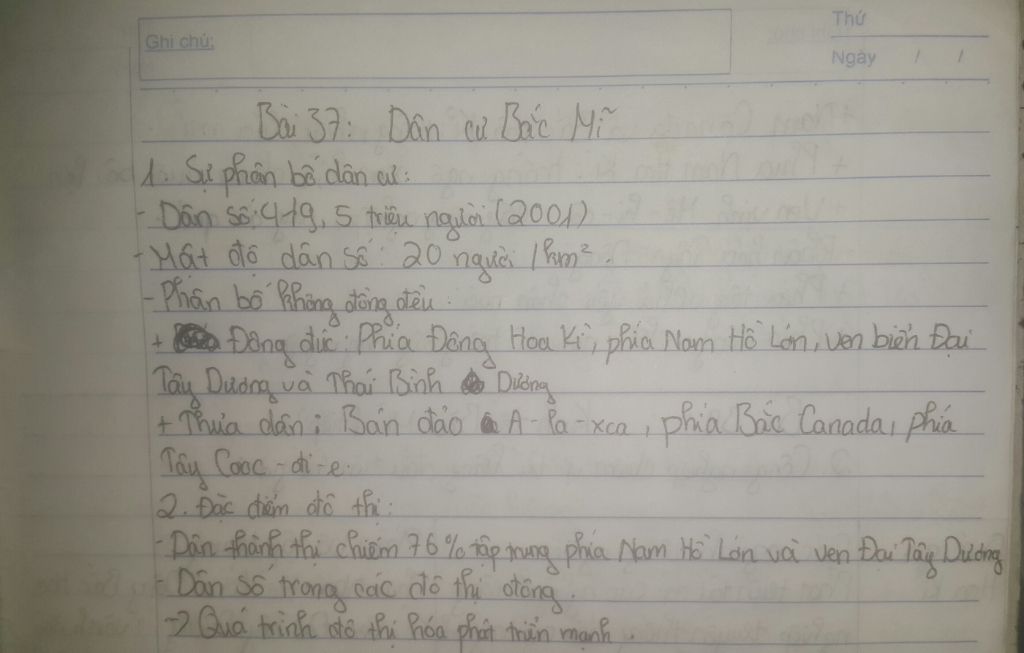 Ghi chú:
Thứ
Ngày / /
Bài 37: Dân cư Bắc Mĩ
1. Sự phân bố dân cư:
- Dân số: 419,5 triệu người (2001)
- Mật độ dân số: 20 người / km².
- Phân bố không đồng đều.
+ Đông đúc: Phía Đông Hoa Kì, phía Nam Hồ Lớn, ven biển Đại
Tây Dương và Thái Bình Dương
+ Thưa dân: Bán đảo A-la-xca, phía Bắc Canada, phía
Tây Cooc-đi-e.
2. Đặc điểm đô thị:
- Dân thành thị chiếm 76% tập trung phía Nam Hồ Lớn và ven Đại Tây Dương
- Dân số trong các đô thị đông.
-> Quá trình đô thị hóa phát triển mạnh.